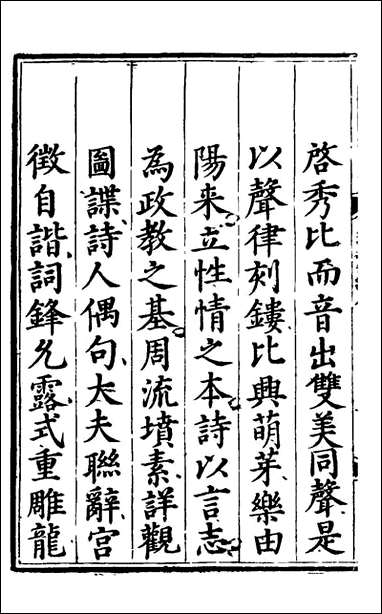 啓秀比而音出雙美同聲是
以聲律刻鏤比興萌芽樂由
陽来立性情之本詩以言志
為政教之基周流墳素詳觀
圖諜詩人偶句大夫聯辭宮
徵自諧詞鋒允露式重雕龍